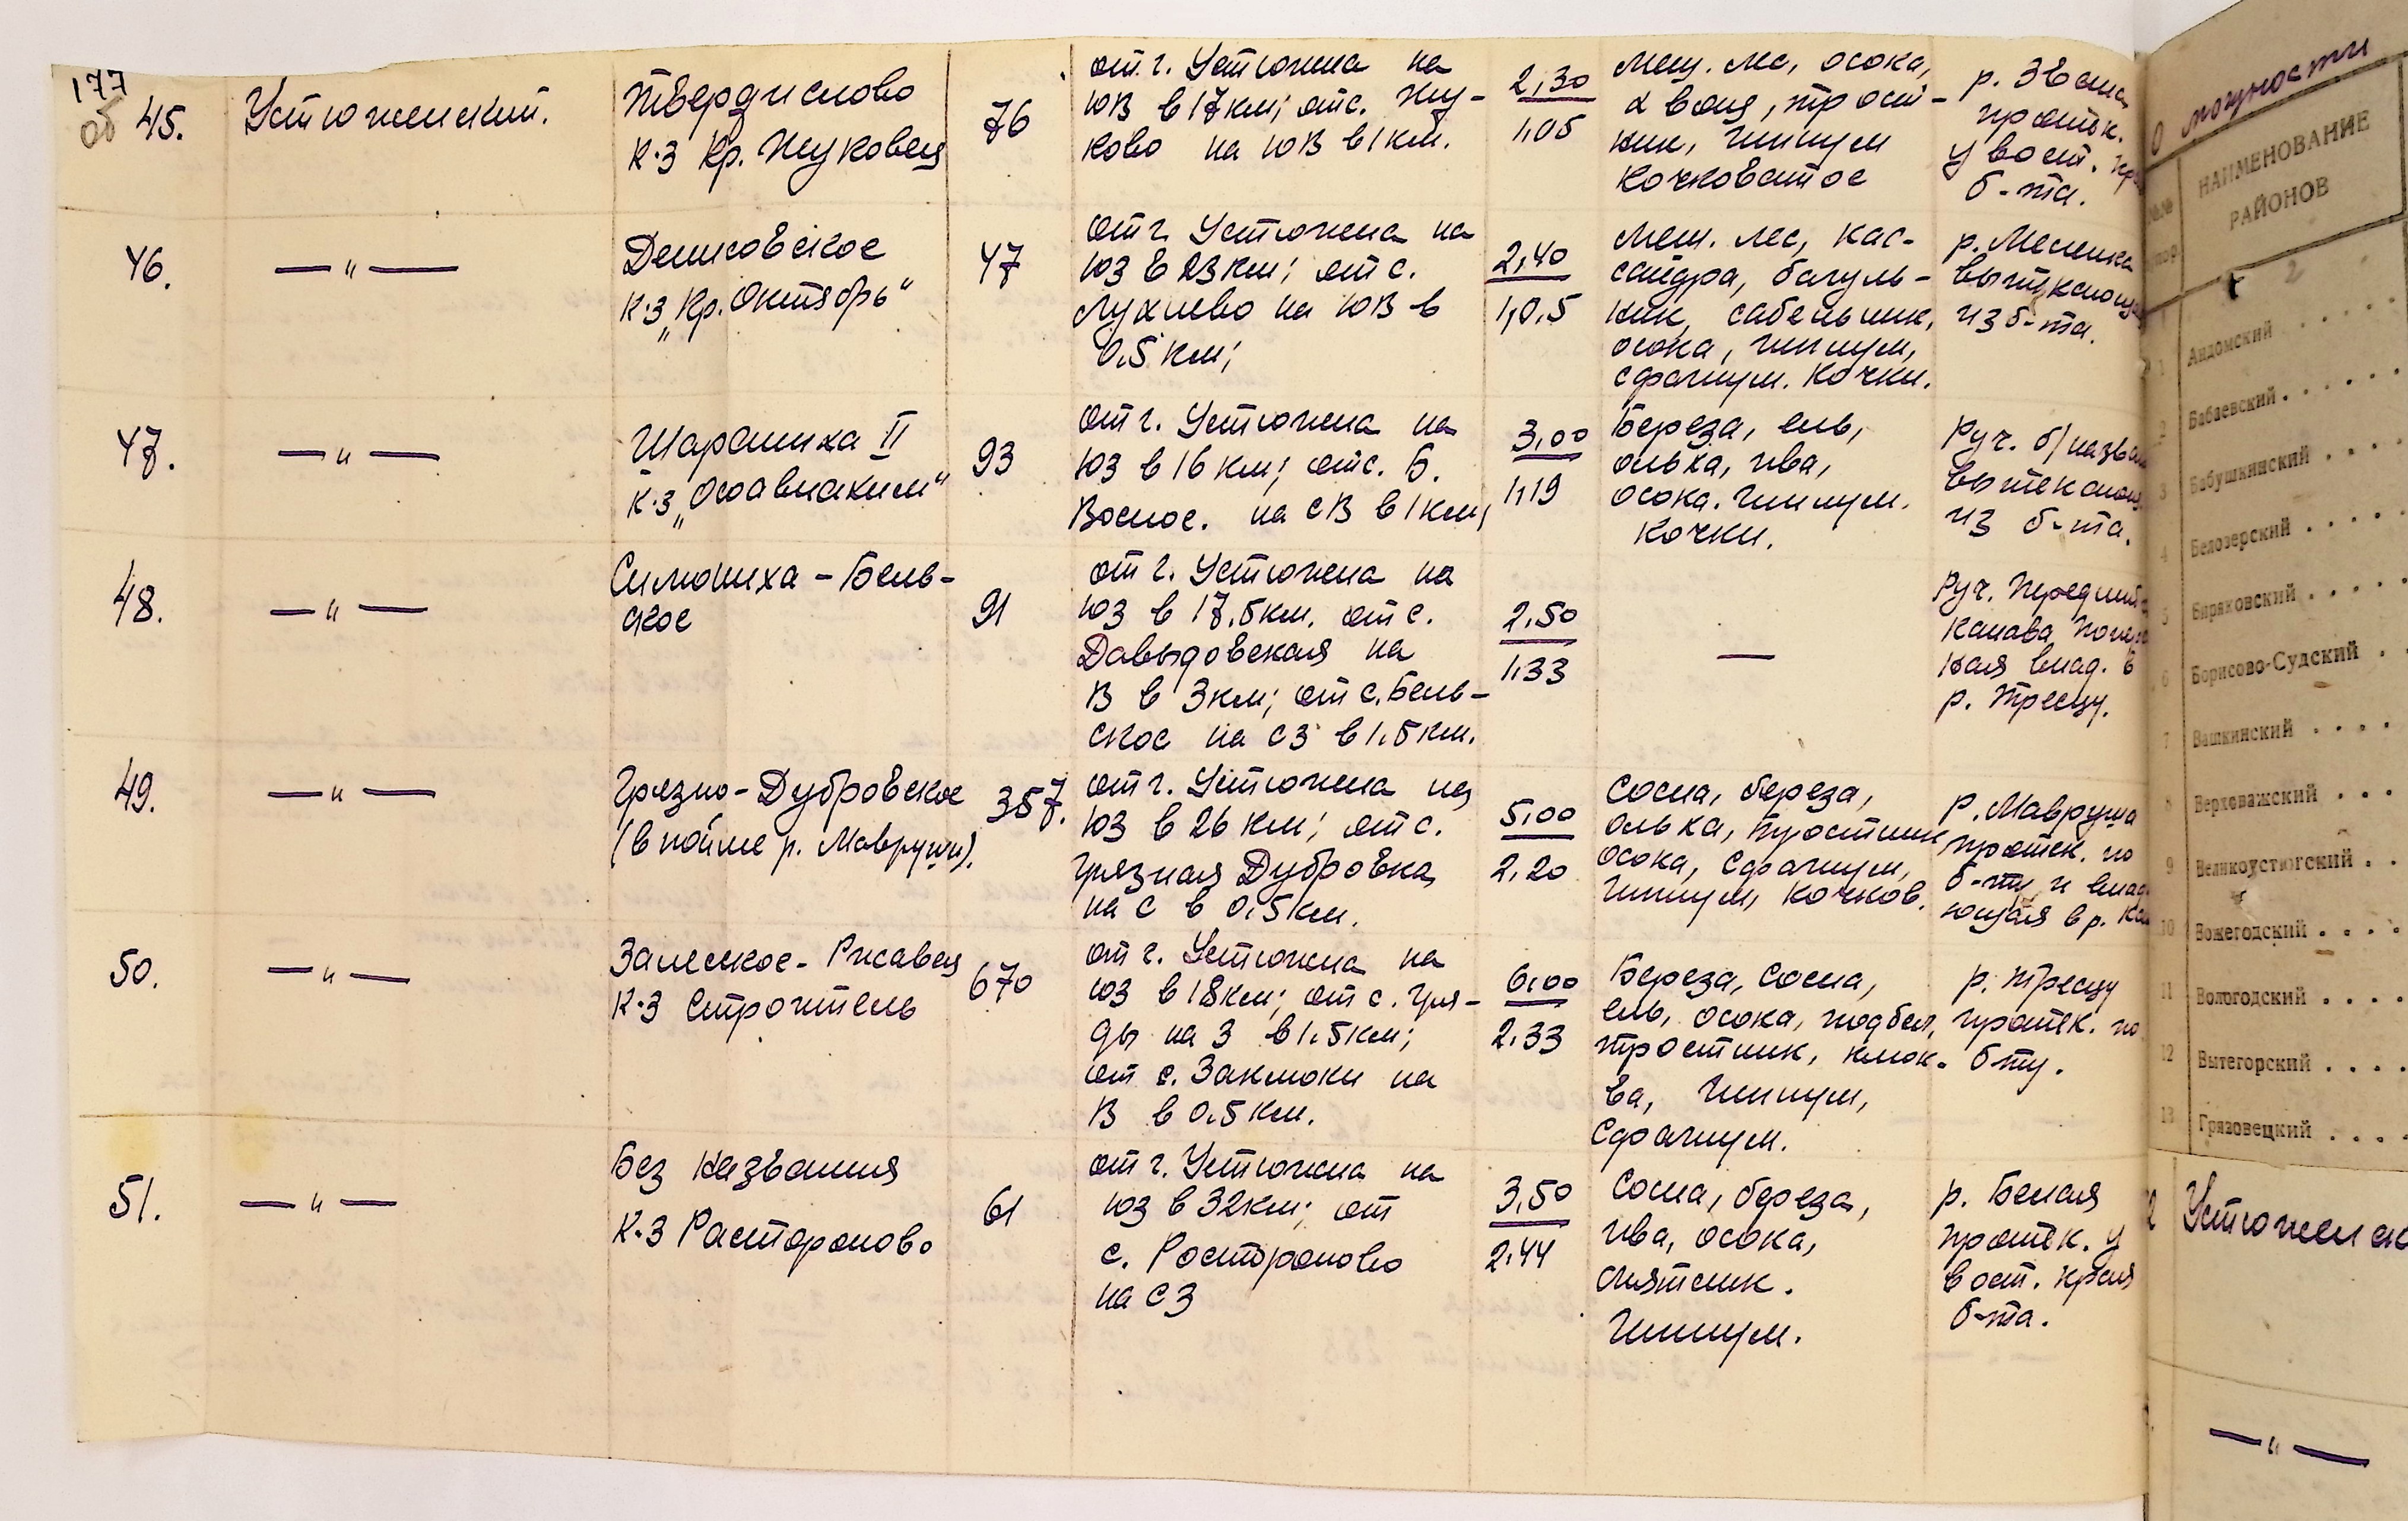 177
об
45.
Устюженский.
Твердислово
к-з Кр. Жуковец
76
от г. Устюжна на
ЮВ в 17 км; от с. Жу-
ково на ЮВ в 1 км.
2,30
1,05
Меш. лес, осока,
хвощ, трост-
ник, гипнум
кочковатое
р. Звана
проток.
у вост. кр
б-та.
46.
— " —
Денисовское
к-з „Кр. Октябрь"
47
от г. Устюжна на
ЮЗ в 23 км; от с.
Лухнево на ЮВ в
0.5 км;
2,40
1,0,5
Меш. лес, кас-
сандра, багуль-
ник, сабельник,
осока, гипнум,
сфагнум. Кочки.
р. Меленка
вытекающ
из б-та.
47.
— " —
Шарониха II
к-з „Осоавиахим"
93
от г. Устюжна на
ЮЗ в 16 км; от с. Б.
Воснос. на СВ в 1 км,
3,00
1,19
Береза, ель,
ольха, ива,
осока. Гипнум.
Кочки.
Руч. б/назван
вытекающ
из б-та.
48.
— " —
Симониха - Бель-
ское
91
от г. Устюжна на
ЮЗ в 17.5 км. от с.
Давыдовская на
В в 3 км; от с. Бель-
ское на СЗ в 1.5 км.
2.50
1.33
—
Руч.
канава
ная впад. в
р. Тресну.
49.
— " —
Грязно-Дубровское
(в пойме р. Мавруши).
357.
от г. Устюжна на
ЮЗ в 26 км; от с.
Грязная Дубровка
на С в 0.5 км.
5,00
2,20
Сосна, береза,
ольха, тростник
осока, сфагнум,
гипнум, кочков.
р. Мавруша
протек. по
б-ту и впад
ющая в р. Ка
50.
— " —
Залесское - Ржавец
к-з Строитель
670
от г. Устюжна на
ЮЗ в 18 км; от с. Гря-
ды на З в 1.5 км;
от с. Заклюки на
В в 0.5 км.
6,00
2.33
Береза, сосна,
ель, осока, подбел,
тростник, клюк-
ва, гипнум,
сфагнум.
р. Тресну
протек. по
б-ту.
51.
— " —
Без названия
к-з Растороново
61
от г. Устюжна на
ЮЗ в 32 км; от
с. Растороново
на СЗ
3,50
2.44
Сосна, береза,
ива, осока,
Гипнум.
р. Белая
протек. у
вост. края
б-та.
О мощности
НАИМЕНОВАНИЕ
РАЙОНОВ
2
1 Андомский . . . . .
2 Бабаевский . . . . . .
3 Бабушкинский . . . .
4 Белозерский . . . . .
5 Биряковский . . . . .
6 Борисово-Судский . .
7 Вашкинский . . . .
8 Верховажский . . .
9 Великоустюгский . .
10 Вожегодский . . . .
11 Вологодский . . . .
12 Вытегорский . . . .
13 Грязовецкий . . . .
Устюженск
— " —